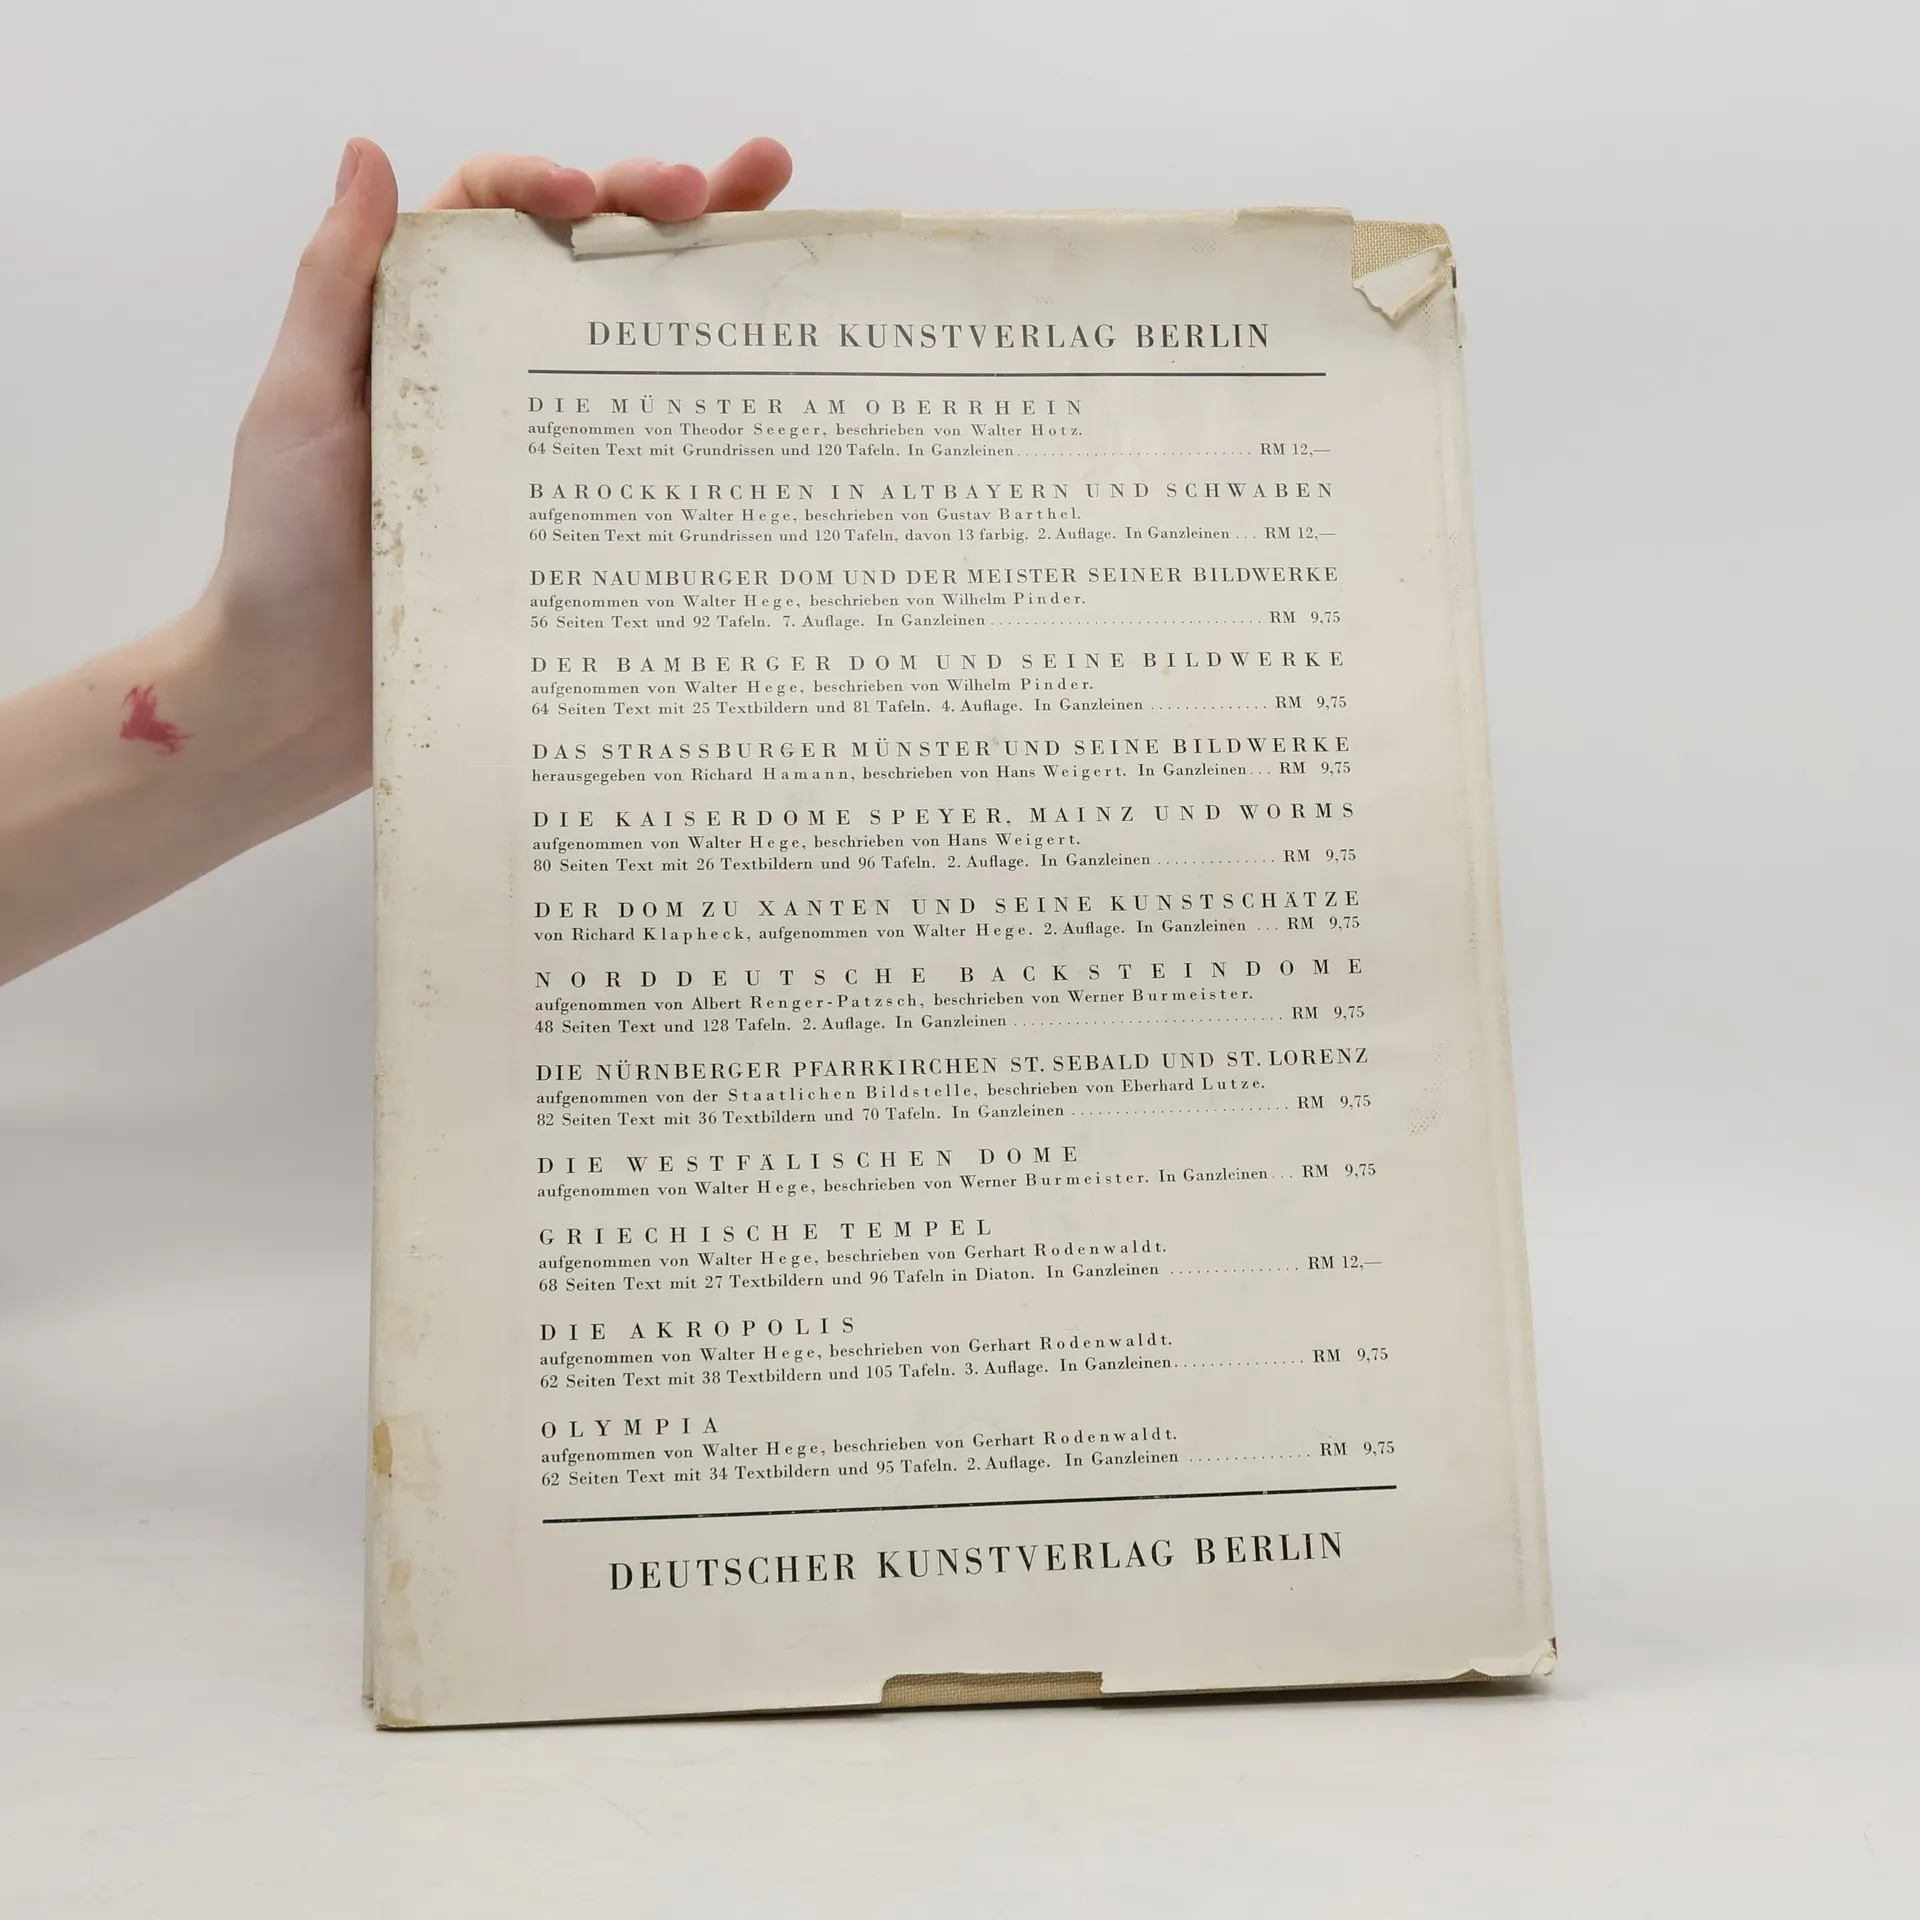 DEUTSCHER KUNSTVERLAG BERLIN
DIE MÜNSTER AM OBERRHEIN
aufgenommen von Theodor Seeger, beschrieben von Walter Hotz.
64 Seiten Text mit Grundrissen und 120 Tafeln. In Ganzleinen............................ RM 12,—
BAROCKKIRCHEN IN ALTBAYERN UND SCHWABEN
aufgenommen von Walter Hege, beschrieben von Gustav Barthel.
60 Seiten Text mit Grundrissen und 120 Tafeln, davon 13 farbig. 2. Auflage. In Ganzleinen ... RM 12,—
DER NAUMBURGER DOM UND DER MEISTER SEINER BILDWERKE
aufgenommen von Walter Hege, beschrieben von Wilhelm Pinder.
56 Seiten Text und 92 Tafeln. 7. Auflage. In Ganzleinen ................................ RM 9,75
DER BAMBERGER DOM UND SEINE BILDWERKE
aufgenommen von Walter Hege, beschrieben von Wilhelm Pinder.
64 Seiten Text mit 25 Textbildern und 81 Tafeln. 4. Auflage. In Ganzleinen .............. RM 9,75
DAS STRASSBURGER MÜNSTER UND SEINE BILDWERKE
herausgegeben von Richard Hamann, beschrieben von Hans Weigert. In Ganzleinen... RM 9,75
DIE KAISERDOME SPEYER, MAINZ UND WORMS
aufgenommen von Walter Hege, beschrieben von Hans Weigert.
80 Seiten Text mit 26 Textbildern und 96 Tafeln. 2. Auflage. In Ganzleinen .............. RM 9,75
DER DOM ZU XANTEN UND SEINE KUNSTSCHÄTZE
von Richard Klapheck, aufgenommen von Walter Hege. 2. Auflage. In Ganzleinen ... RM 9,75
NORDDEUTSCHE BACKSTEINDOME
aufgenommen von Albert Renger-Patzsch, beschrieben von Werner Burmeister.
48 Seiten Text und 128 Tafeln. 2. Auflage. In Ganzleinen ................................ RM 9,75
DIE NÜRNBERGER PFARRKIRCHEN ST. SEBALD UND ST. LORENZ
aufgenommen von der Staatlichen Bildstelle, beschrieben von Eberhard Lutze.
82 Seiten Text mit 36 Textbildern und 70 Tafeln. In Ganzleinen ......................... RM 9,75
DIE WESTFÄLISCHEN DOME
aufgenommen von Walter Hege, beschrieben von Werner Burmeister. In Ganzleinen... RM 9,75
GRIECHISCHE TEMPEL
aufgenommen von Walter Hege, beschrieben von Gerhart Rodenwaldt.
68 Seiten Text mit 27 Textbildern und 96 Tafeln in Diaton. In Ganzleinen ............... RM 12,—
DIE AKROPOLIS
aufgenommen von Walter Hege, beschrieben von Gerhart Rodenwaldt.
62 Seiten Text mit 38 Textbildern und 105 Tafeln. 3. Auflage. In Ganzleinen............... RM 9,75
OLYMPIA
aufgenommen von Walter Hege, beschrieben von Gerhart Rodenwaldt.
62 Seiten Text mit 34 Textbildern und 95 Tafeln. 2. Auflage. In Ganzleinen .............. RM 9,75
DEUTSCHER KUNSTVERLAG BERLIN